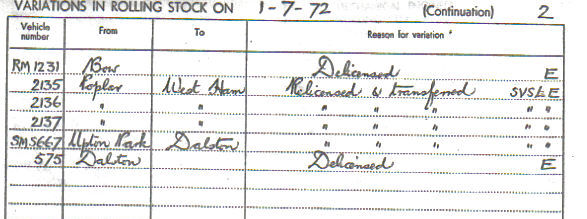 VARIATIONS IN ROLLING STOCK ON 1-7-72 (Continuation) 2
Vehicle number From To Reason for variation *
RM1231 Bow Delicensed E
2135 Poplar West Ham Relicensed & transferred SVSL E
2136 " " " " " " "
2137 " " " " " " "
SMS667 Upton Park Dalston " " " " "
575 Dalston Delicensed E